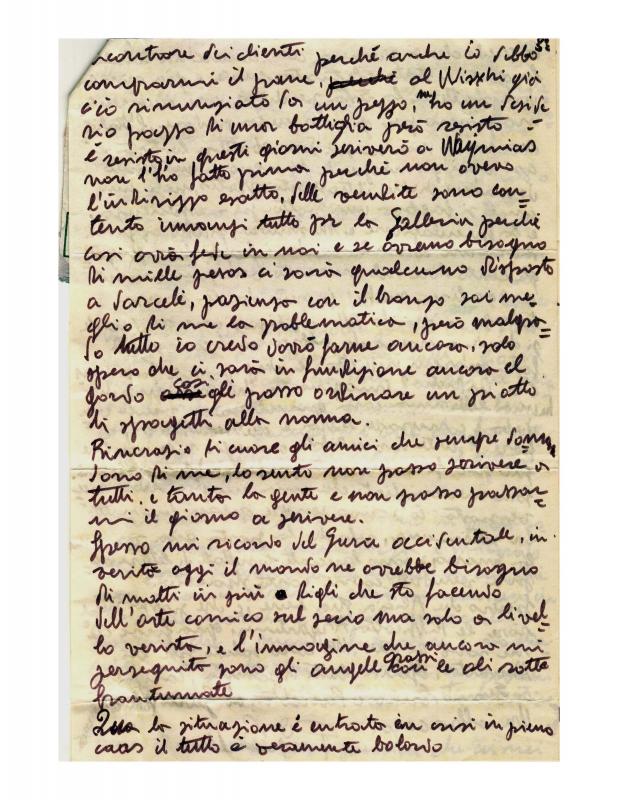 5
incontrare dei clienti perché anche io debbo
comprarmi il pane, perché al Wisski già
c'ió rinunziato da un pezzo, ne ho un deside
rio pazzo di una battiglia però resisto
é resisto, in questi giorni scriverò a
non l'ho fatto prima perché non avevo
l'indirizzo esatto, delle vendite sono con=
tento innanzi tutto per la Galleria perché
cosi avrà fede in noi e se avremo bisogno
di mille pesos ci sarà qualcuno disposto
a darceli, pazienza con il bronzo sai me=
glio di me la problematica, però malgra=
do tutto io credo dovrò farne ancora, solo
spero che ci sarà in fundizione ancora el
gordo cosi gli posso ordinare un piatto
di spagetti alla nonna.
Rincrazio di cuore gli amici che sempre doman
dano di me, lo sento non posso scrivere a
tutti. e tanta la gente e non posso passar=
mi il giorno a scrivere.
Spesso mi ricordo del Gura accidentale, in
verità oggi il mondo ne avrebbe bisogno
di matti in più digli che sto facendo
dell'arte comico sul serio ma solo a livel=
lo verista, e l'immagine che ancora mi
perseguita sono gli angele grassi con le ali rotte
frantumate
Qua la situazione é entrata in crisi in pieno
caas il tutto é veramente balordo